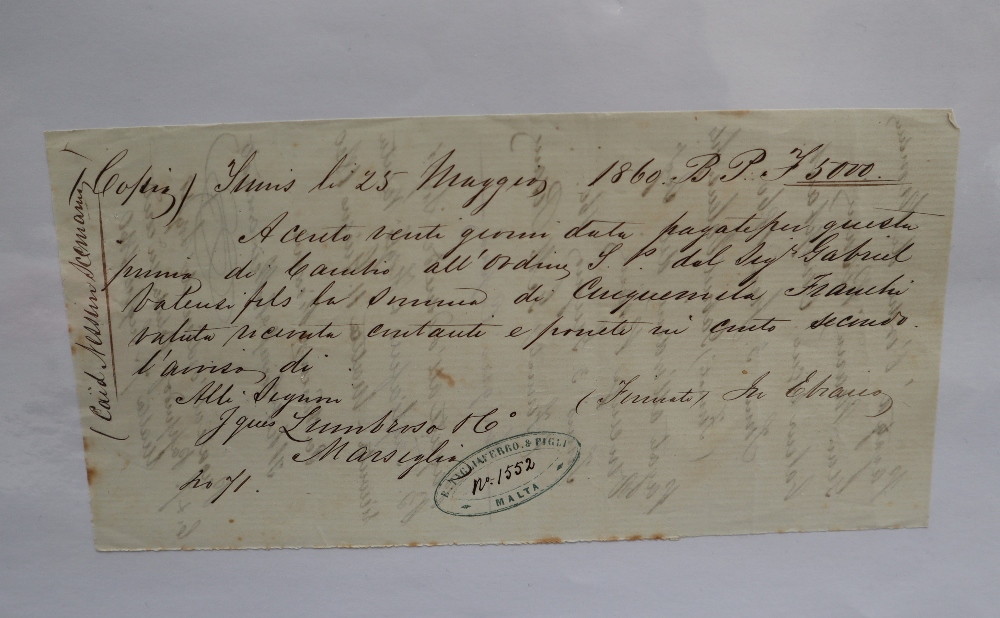 Copia) Tunis li 25 Maggio 1860. B. P. F 5000.
A cento venti giorni data pagate per questa
prima di Cambio all'Ordine S. P. del Sigr Gabriel
Valensi fils la Somma di Cinquemila Franchi
valuta ricevuta contanti e ponete in conto secondo
l'avviso di
Alli Signori
(Firmato) In Ebraico
Jques Lumbroso & Co
Marsiglia
No 71.
(Caid Nessim Scemama)
E. TAGLIAFERRO. & FIGLI
No. 1552
MALTA